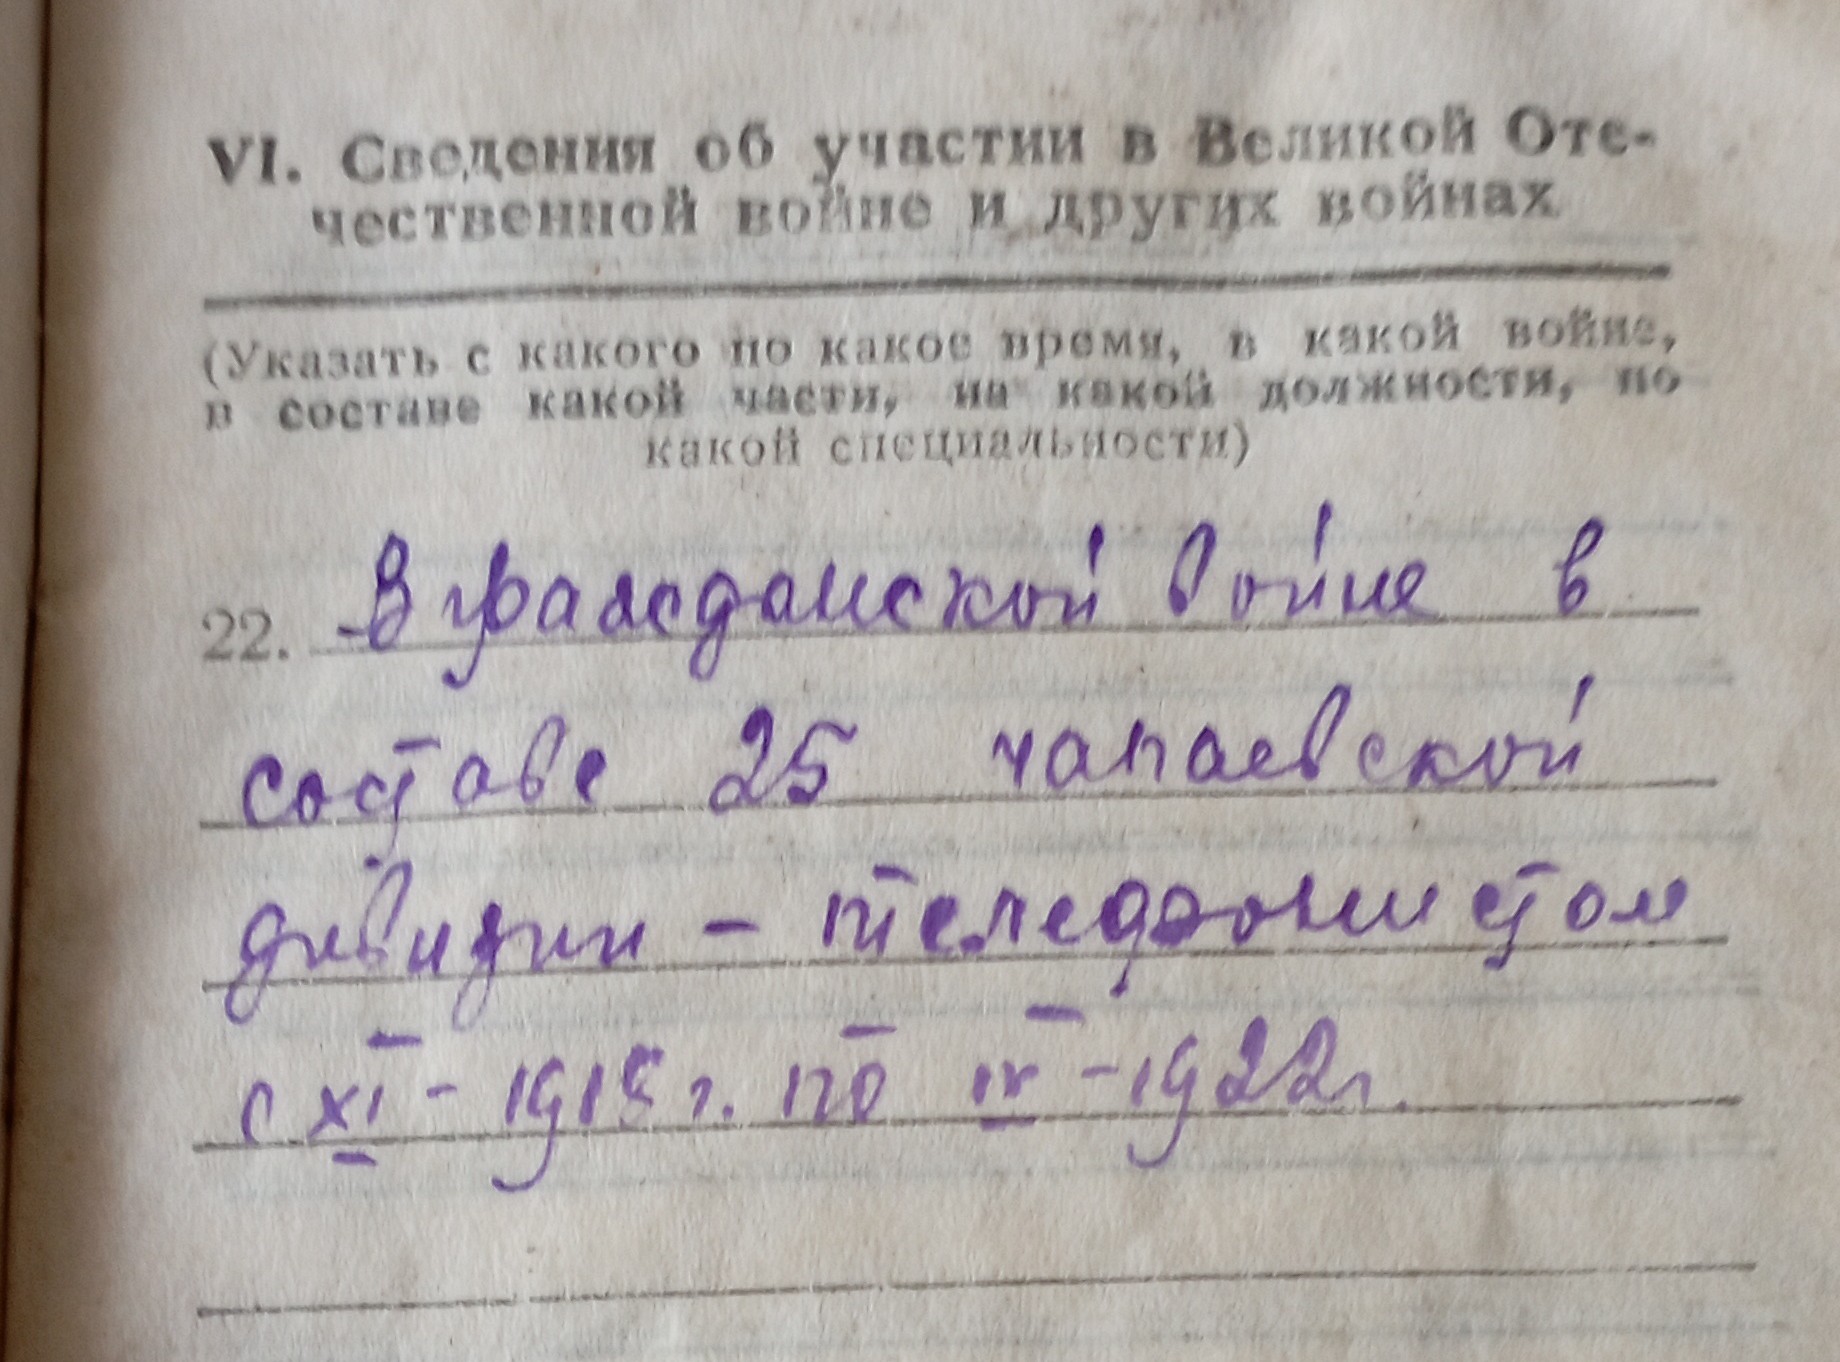 VI. Сведения об участии в Великой Оте-
чественной войне и других войнах
(Указать с какого по какое время, в какой войне,
в составе какой части, на какой должности, по
какой специальности)
22. В гражданской войне в
составе 25 чапаевской
дивизии - телефонистом
с XI - 1918 г. по IV - 1922 г.